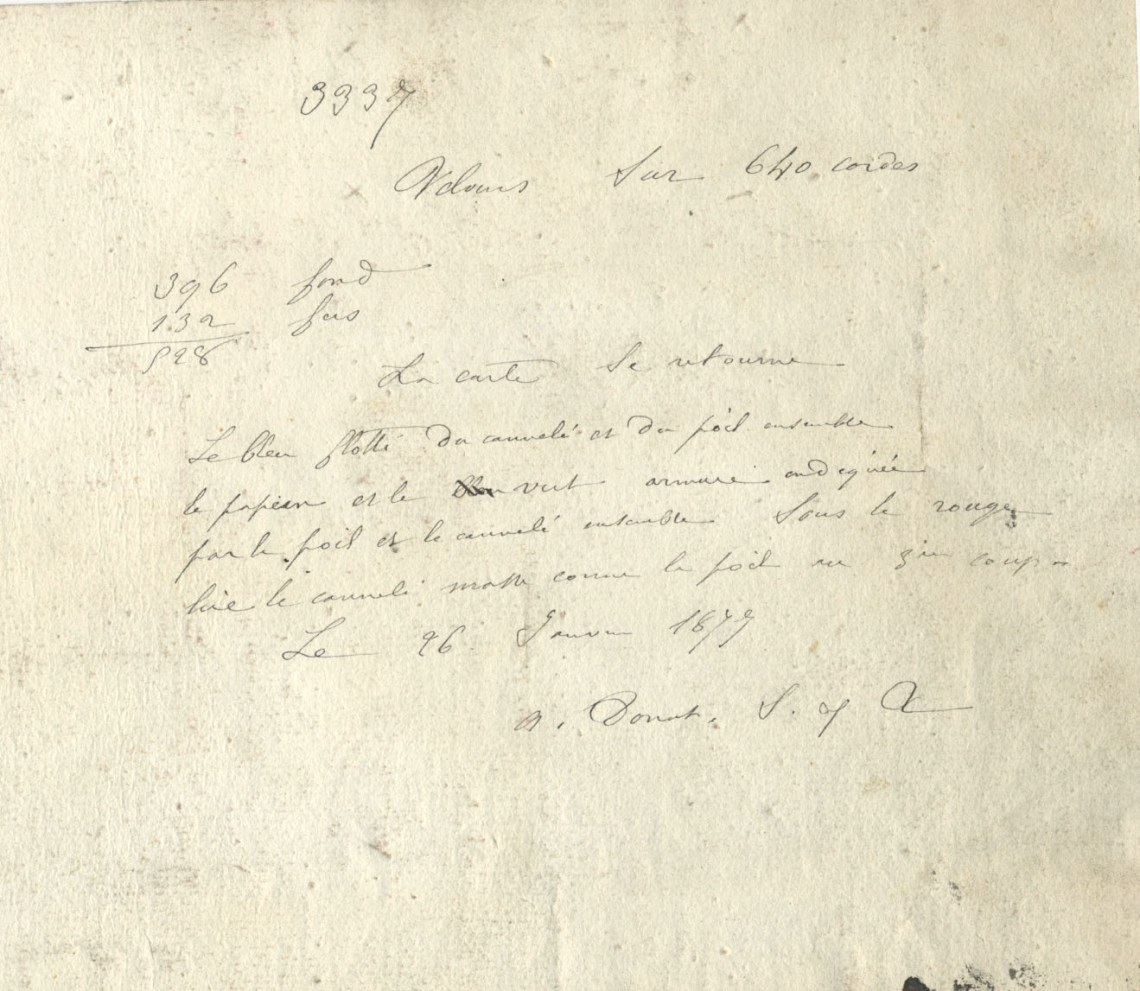 3337
Velours Sur 640 cordes
396 fond
132 fers
528
La carte Se retourne
Le bleu flotté du cannelé et du poil ensemble
le papier et le vert armure indiquée
par le poil et le cannelé ensemble Sous le rouge
lire le cannelé comme le poil au 3me coup
Le 26 Janvier 1877
Donat. S. &